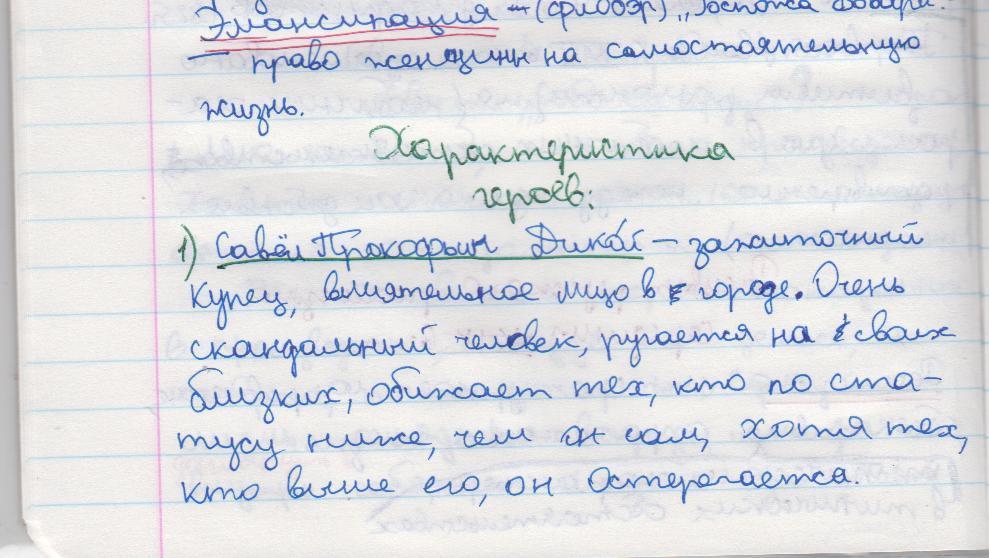 Эмансипация — (флобэр) „Госпожа Бовари."
— право женщины на самостоятельную
жизнь.
Характеристика
героев:
1) Савёл Прокофьич Дико́й — зажиточный
купец, влиятельное лицо в городе. Очень
скандальный человек, ругается на своих
близких, обижает тех, кто по ста-
тусу ниже, чем он сам, хотя тех,
кто выше его, он остерегается.